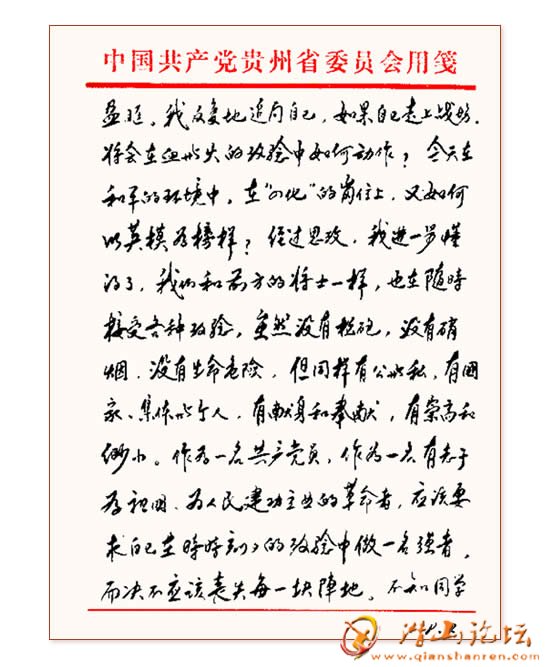 中国共产党贵州省委员会用笺
益旺。我反复地追问自己，如果自己走上战场，
将会在血与火的考验中如何动作？今天在
和平的环境中，在“四化”的岗位上，又如何
以英模为榜样？经过思考，我进一步懂
得了，我们和前方的将士一样，也在随時
接受各种考验，虽然没有枪砲，没有硝
烟，没有生命危险，但同样有公与私，有國
家、集体与个人，有献身和奉献，有崇高和
渺小。作为一名共产党员，作为一名有志于
为祖国、为人民建功立业的革命者，应该要
求自己在時時刻刻的考验中做一名强者，
而决不应该丧失每一块陣地。不知同学
潜山论坛
www.qianshanren.com